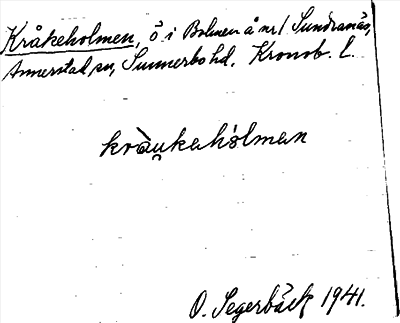 Kråkeholmen, ö i Bolmen å nr 1 Sundranäs,
Annerstad sn, Sunnerbo hd. Kronob. l.
kràu̯kahòlman
O. Segerbäck 1941.